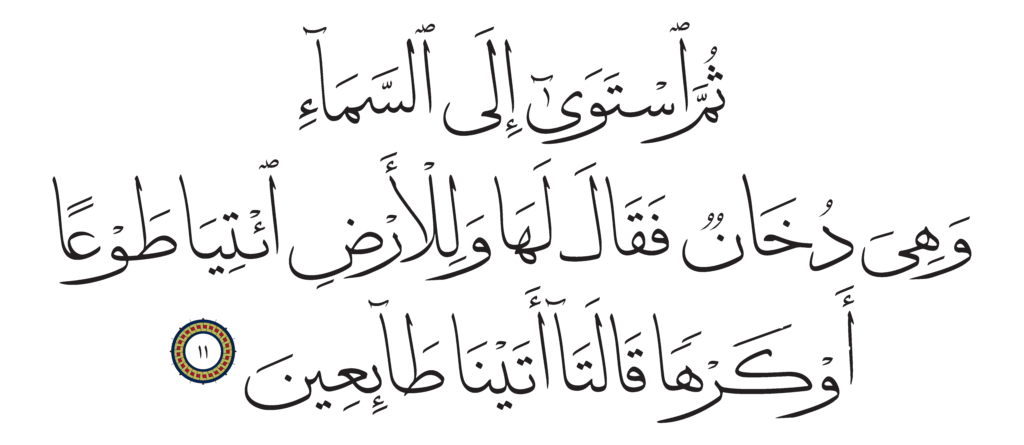 ثُمَّ ٱسْتَوَىٰٓ إِلَى ٱلسَّمَآءِ
وَهِىَ دُخَانٌ فَقَالَ لَهَا وَلِلْأَرْضِ ٱئْتِيَا طَوْعًا
أَوْ كَرْهًا قَالَتَآ أَتَيْنَا طَآئِعِينَ ١١